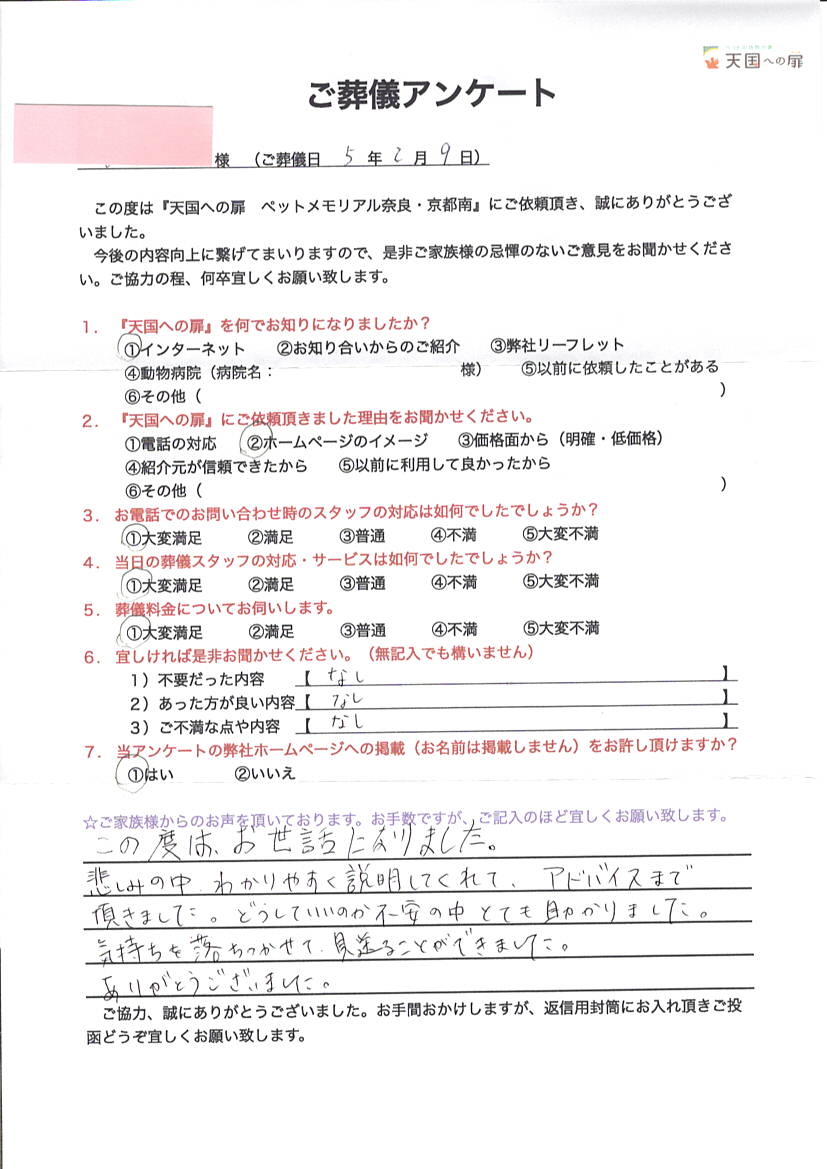 天国への扉
ご葬儀アンケート
様 （ご葬儀日 5 年 2 月 9 日）
この度は『天国への扉 ペットメモリアル奈良・京都南』にご依頼頂き、誠にありがとうござ
いました。
今後の内容向上に繋げてまいりますので、是非ご家族様の忌憚のないご意見をお聞かせくださ
い。ご協力の程、何卒宜しくお願い致します。
1．『天国への扉』を何でお知りになりましたか？
①インターネット ②お知り合いからのご紹介 ③弊社リーフレット
④動物病院（病院名： 様） ⑤以前に依頼したことがある
⑥その他（ ）
2．『天国への扉』にご依頼頂きました理由をお聞かせください。
①電話の対応 ②ホームページのイメージ ③価格面から（明確・低価格）
④紹介元が信頼できたから ⑤以前に利用して良かったから
⑥その他（ ）
3．お電話でのお問い合わせ時のスタッフの対応は如何でしたでしょうか？
①大変満足 ②満足 ③普通 ④不満 ⑤大変不満
4．当日の葬儀スタッフの対応・サービスは如何でしたでしょうか？
①大変満足 ②満足 ③普通 ④不満 ⑤大変不満
5．葬儀料金についてお伺いします。
①大変満足 ②満足 ③普通 ④不満 ⑤大変不満
6．宜しければ是非お聞かせください。（無記入でも構いません）
1）不要だった内容 【 なし 】
2）あった方が良い内容【 なし 】
3）ご不満な点や内容 【 なし 】
7．当アンケートの弊社ホームページへの掲載（お名前は掲載しません）をお許し頂けますか？
①はい ②いいえ
☆ご家族様からのお声を頂いております。お手数ですが、ご記入のほど宜しくお願い致します。
この度は、お世話になりました。
悲しみの中、わかりやすく説明してくれて、アドバイスまで
頂きました。どうしていいのか不安の中とても助かりました。
気持ちを落ちつかせて、見送ることができました。
ありがとうございました。
ご協力、誠にありがとうございました。お手間おかけしますが、返信用封筒にお入れ頂きご投
函どうぞ宜しくお願い致します。